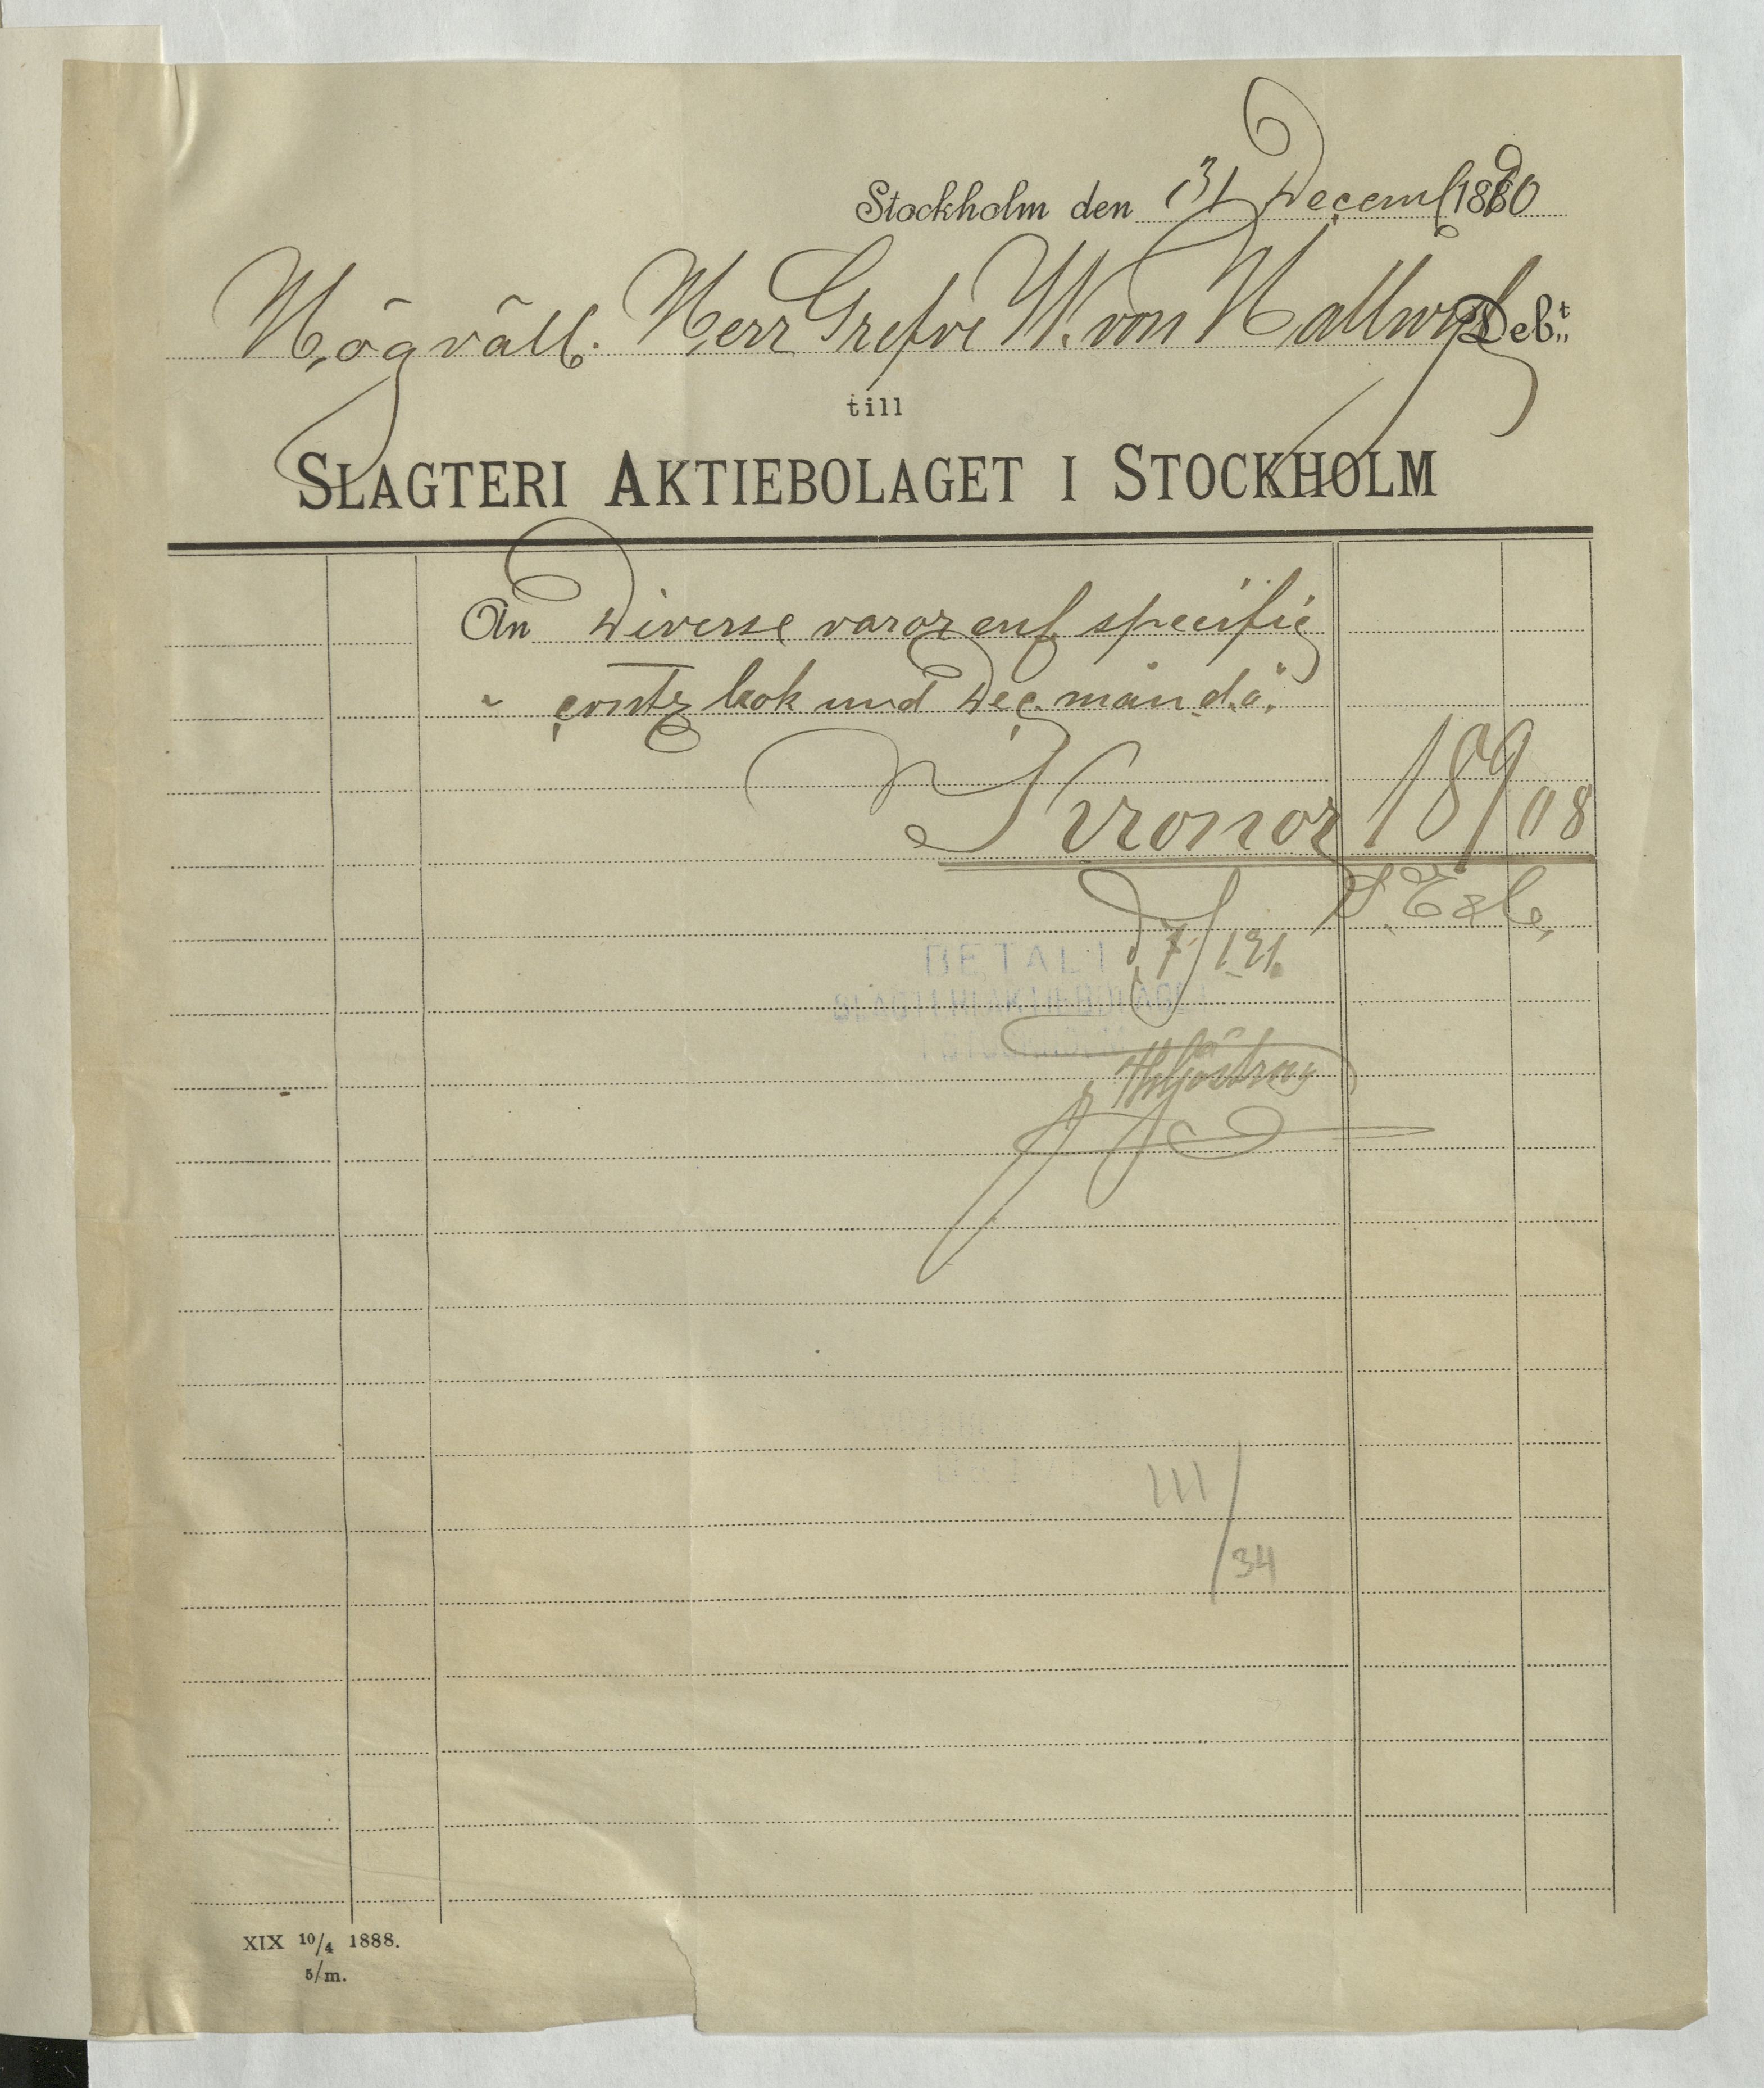 Stockholm den 31 Decemb 1890
Högväll. Herr Grefve W. von Hallwyl Deb.t
till
SLAGTERI AKTIEBOLAGET I STOCKHOLM
An Diverse varor enl. specific
" contra bok und Dec. månad.
Kronor 189 08
BETALT d. 7/1 91.
SLAGTERIAKTIEBOLAGET
I STOCKHOLM
111/34
XIX 10/4 1888.
5/m.